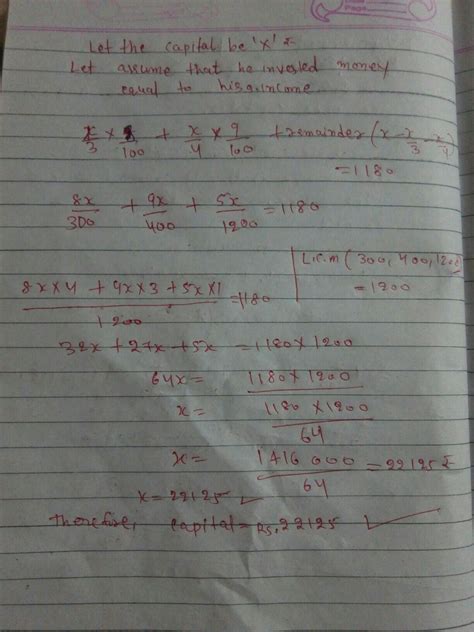 Let the capital be 'x' ₹
Let assume that he invested money
equal to his income
x/3 × 8/100 + x/4 × 9/100 + remainder (x - x/3 - x/4)
= 1180
8x/300 + 9x/400 + 5x/1200 = 1180
L.C.M (300, 400, 1200)
= 1200
8x×4 + 9x×3 + 5x×1 / 1200 = 1180
32x + 27x + 5x = 1180×1200
64x = 1180×1200
x = 1180×1200 / 64
x = 1416000 / 64 = 22125 ₹
x = 22125 ✓
Therefore, capital = Rs. 22125 ✓